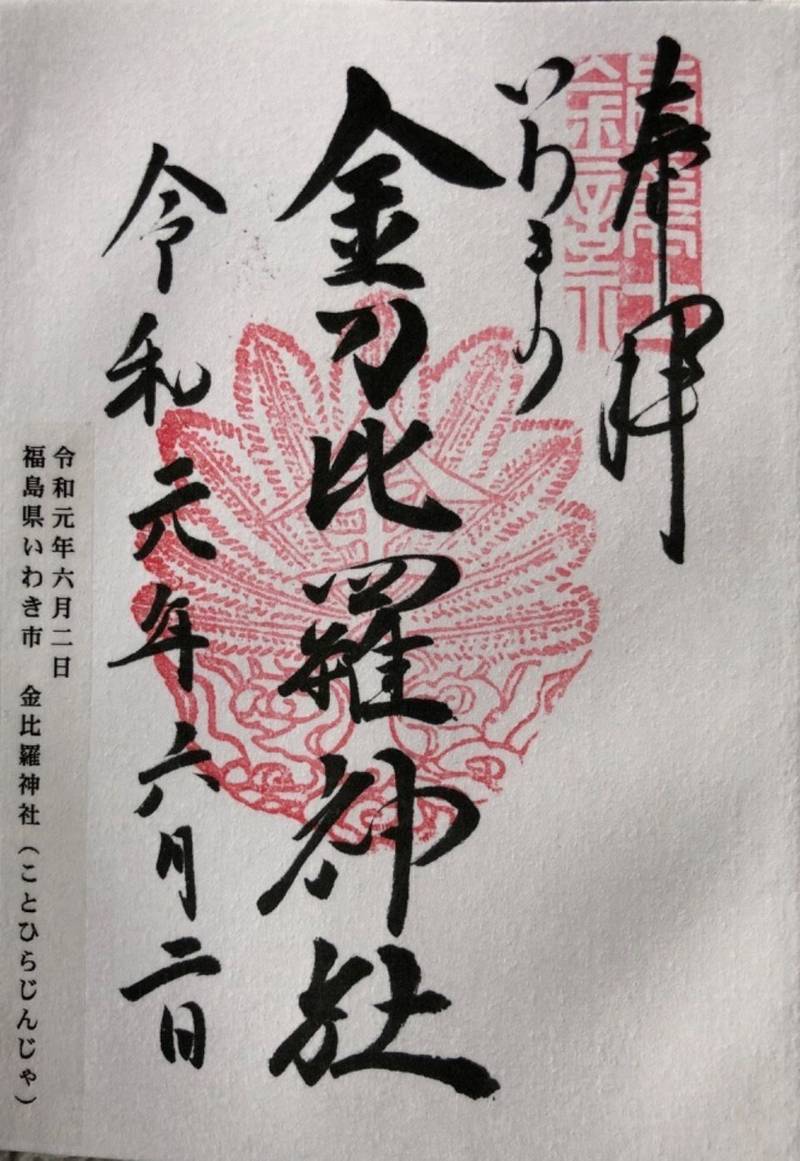 奉拝
金刀比羅神社
令和元年六月二日
令和元年六月二日
福島県いわき市 金比羅神社（ことひらじんじゃ）